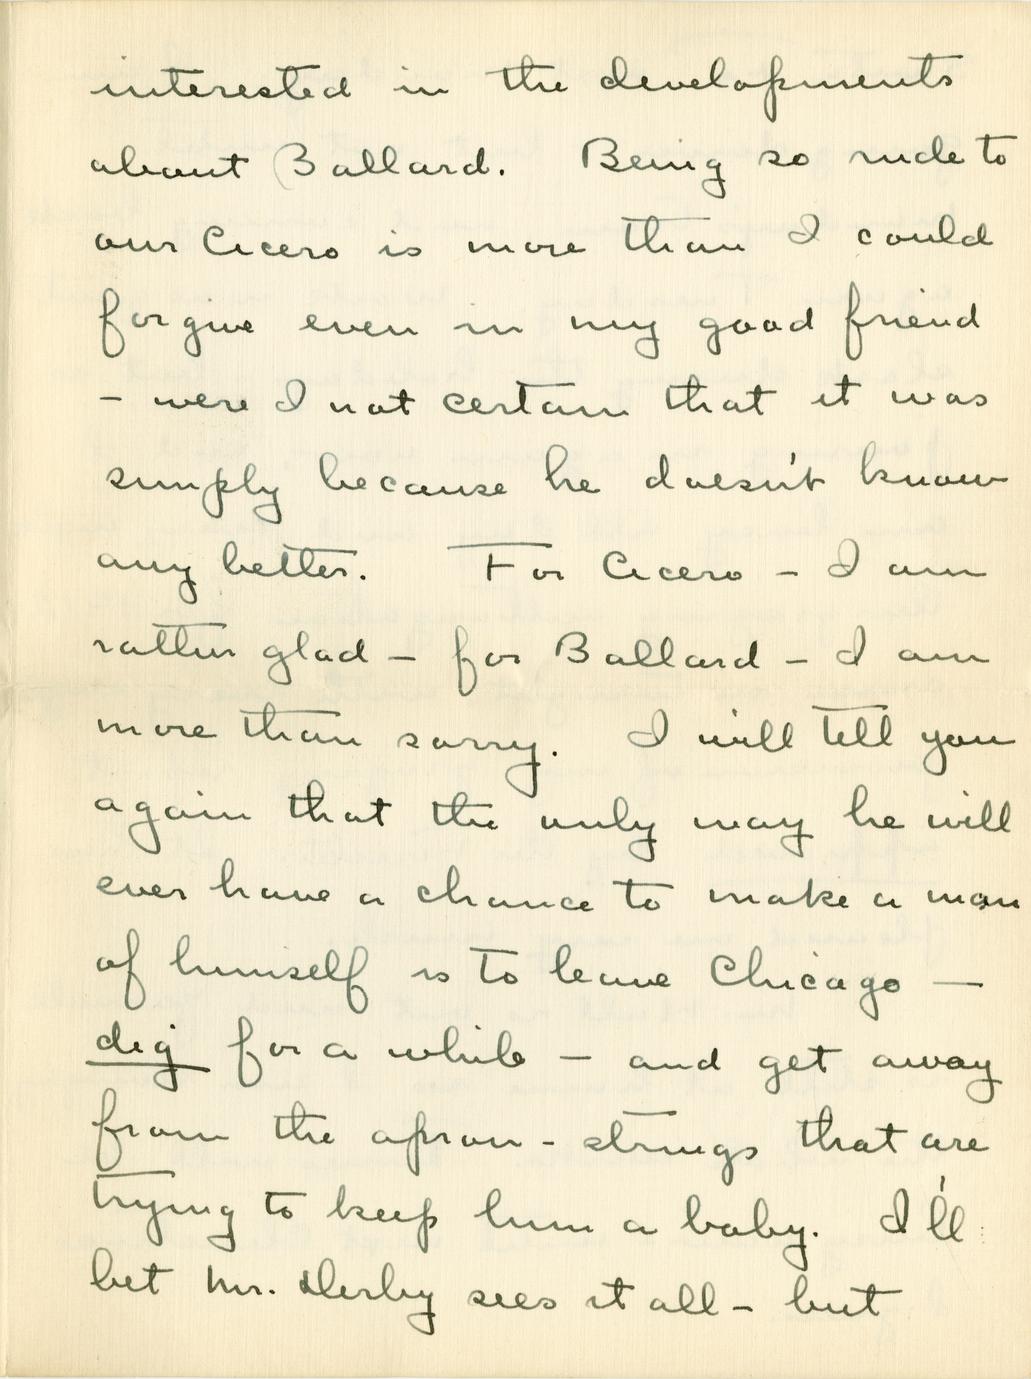 interested in the developments
about Ballard. Being so rude to
our Cicero is more than I could
forgive even in my good friend
- were I not certain that it was
simply because he doesn't know
any better. For Cicero - I am
rather glad - for Ballard - I am
more than sorry. I will tell you
again that the only way he will
ever have a chance to make a man
of himself is to leave Chicago -
dig for a while - and get away
from the apron-strings that are
trying to keep him a baby. I'll
bet Mr. Derby sees it all - but